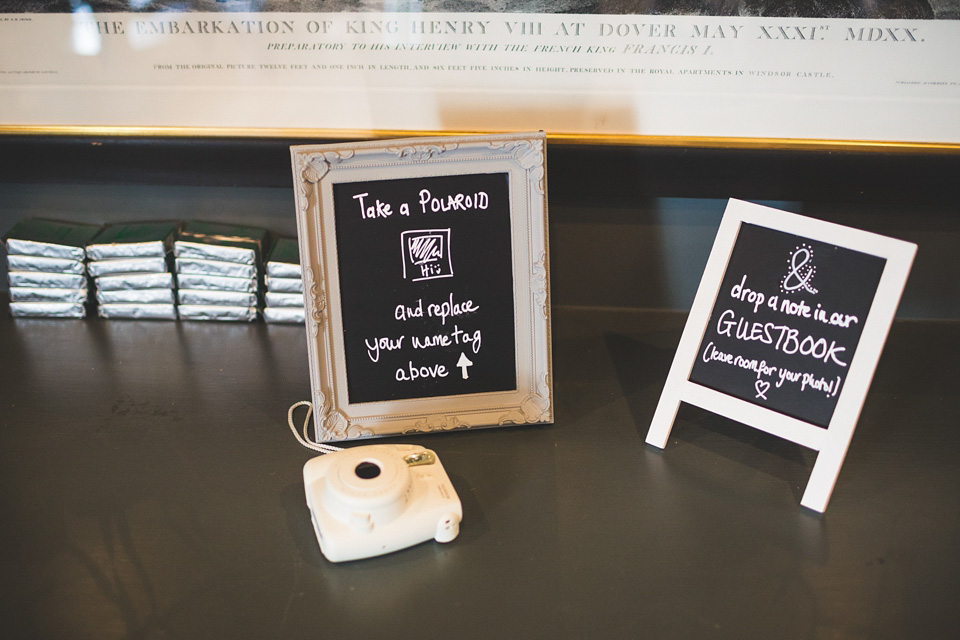 THE EMBARKATION OF KING HENRY VIII AT DOVER MAY XXXI.ST MDXX.
PREPARATORY TO HIS INTERVIEW WITH THE FRENCH KING FRANCIS I.
FROM THE ORIGINAL PICTURE TWELVE FEET AND ONE INCH IN LENGTH, AND SIX FEET FIVE INCHES IN HEIGHT, PRESERVED IN THE ROYAL APARTMENTS IN WINDSOR CASTLE.
Take a POLAROID
Hi
and replace
your name tag
above ↑
&
drop a note in our
GUESTBOOK
(leave room for your photo!)
♡